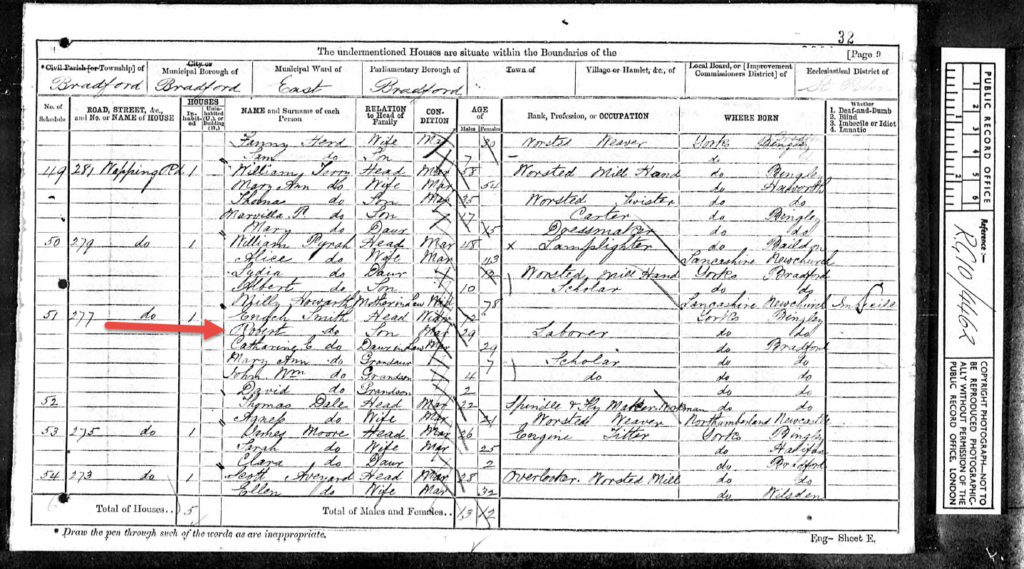 32
The undermentioned Houses are situate within the Boundaries of the [Page 9
*Civil Parish [or Township] of City or Municipal Borough of Municipal Ward of Parliamentary Borough of Town of Village or Hamlet, &c., of Local Board, or [Improvement Commissioners District] of Ecclesiastical District of
Bradford Bradford East Bradford
No. of Schedule ROAD, STREET, &c., and No. or NAME of HOUSE HOUSES Inhabited Uninhabited (U.), or Building (B.) NAME and Surname of each Person RELATION to Head of Family CONDITION AGE of Males Females Rank, Profession, or OCCUPATION WHERE BORN Whether 1. Deaf-and-Dumb 2. Blind 3. Imbecile or Idiot 4. Lunatic
Fanny Herd Wife Mar 30 Worsted Weaver Yorks Bingley
Sam do Son 7 do
49 281 Wapping Rd 1 William Terry Head Mar 58 Worsted Mill Hand do Bingley
Mary Ann do Wife Mar 54 do Haworth
Thomas do Son 25 Worsted Twister do do
do Son 17 Carter do Bingley
Mary do Daur 15 Dressmaker do do
50 279 do 1 William Pyrah Head Mar 48 x Lamplighter do Baildon
Alice do Wife Mar 43 Lancashire Newchurch
Lydia do Daur Worsted Mill Hand Yorks Bradford
Albert do Son 10 Scholar do do
Milly Howarth Motherinlaw Wid 78 Lancashire Newchurch
51 277 do 1 Enoch Smith Head Widr Yorks Bingley
Robert do Son Mar 29 Laborer do do
Catharine E do Daurinlaw Mar 29 do Bradford
Mary Ann do Grandaur 7 Scholar do do
John Wm do Grandson 4 do do do
David do Grandson 2 do do
52 Thomas Dale Head Mar 22 Spindle & Fly Maker do do
Agness do Wife Mar 21 Worsted Weaver Northumberland Newcastle
53 275 do 1 James Moore Head Mar 26 Engine Fitter Yorks Bingley
Sarah do Wife Mar 25 do Halifax
Clara do Daur 2 do Bradford
54 273 do 1 Aveyard Head Mar 28 Overlooker Worsted Mill do do
Ellen do Wife Mar 32 do Wilsden
Total of Houses.. 5 Total of Males and Females.. 13 12
* Draw the pen through such of the words as are inappropriate.
Eng- Sheet E.
PUBLIC RECORD OFFICE
1 2 3 4 5 6
1 2
Reference :-
RG10/4462
COPYRIGHT PHOTOGRAPH—NOT TO BE REPRODUCED PHOTOGRAPHICALLY WITHOUT PERMISSION OF THE PUBLIC RECORD OFFICE, LONDON